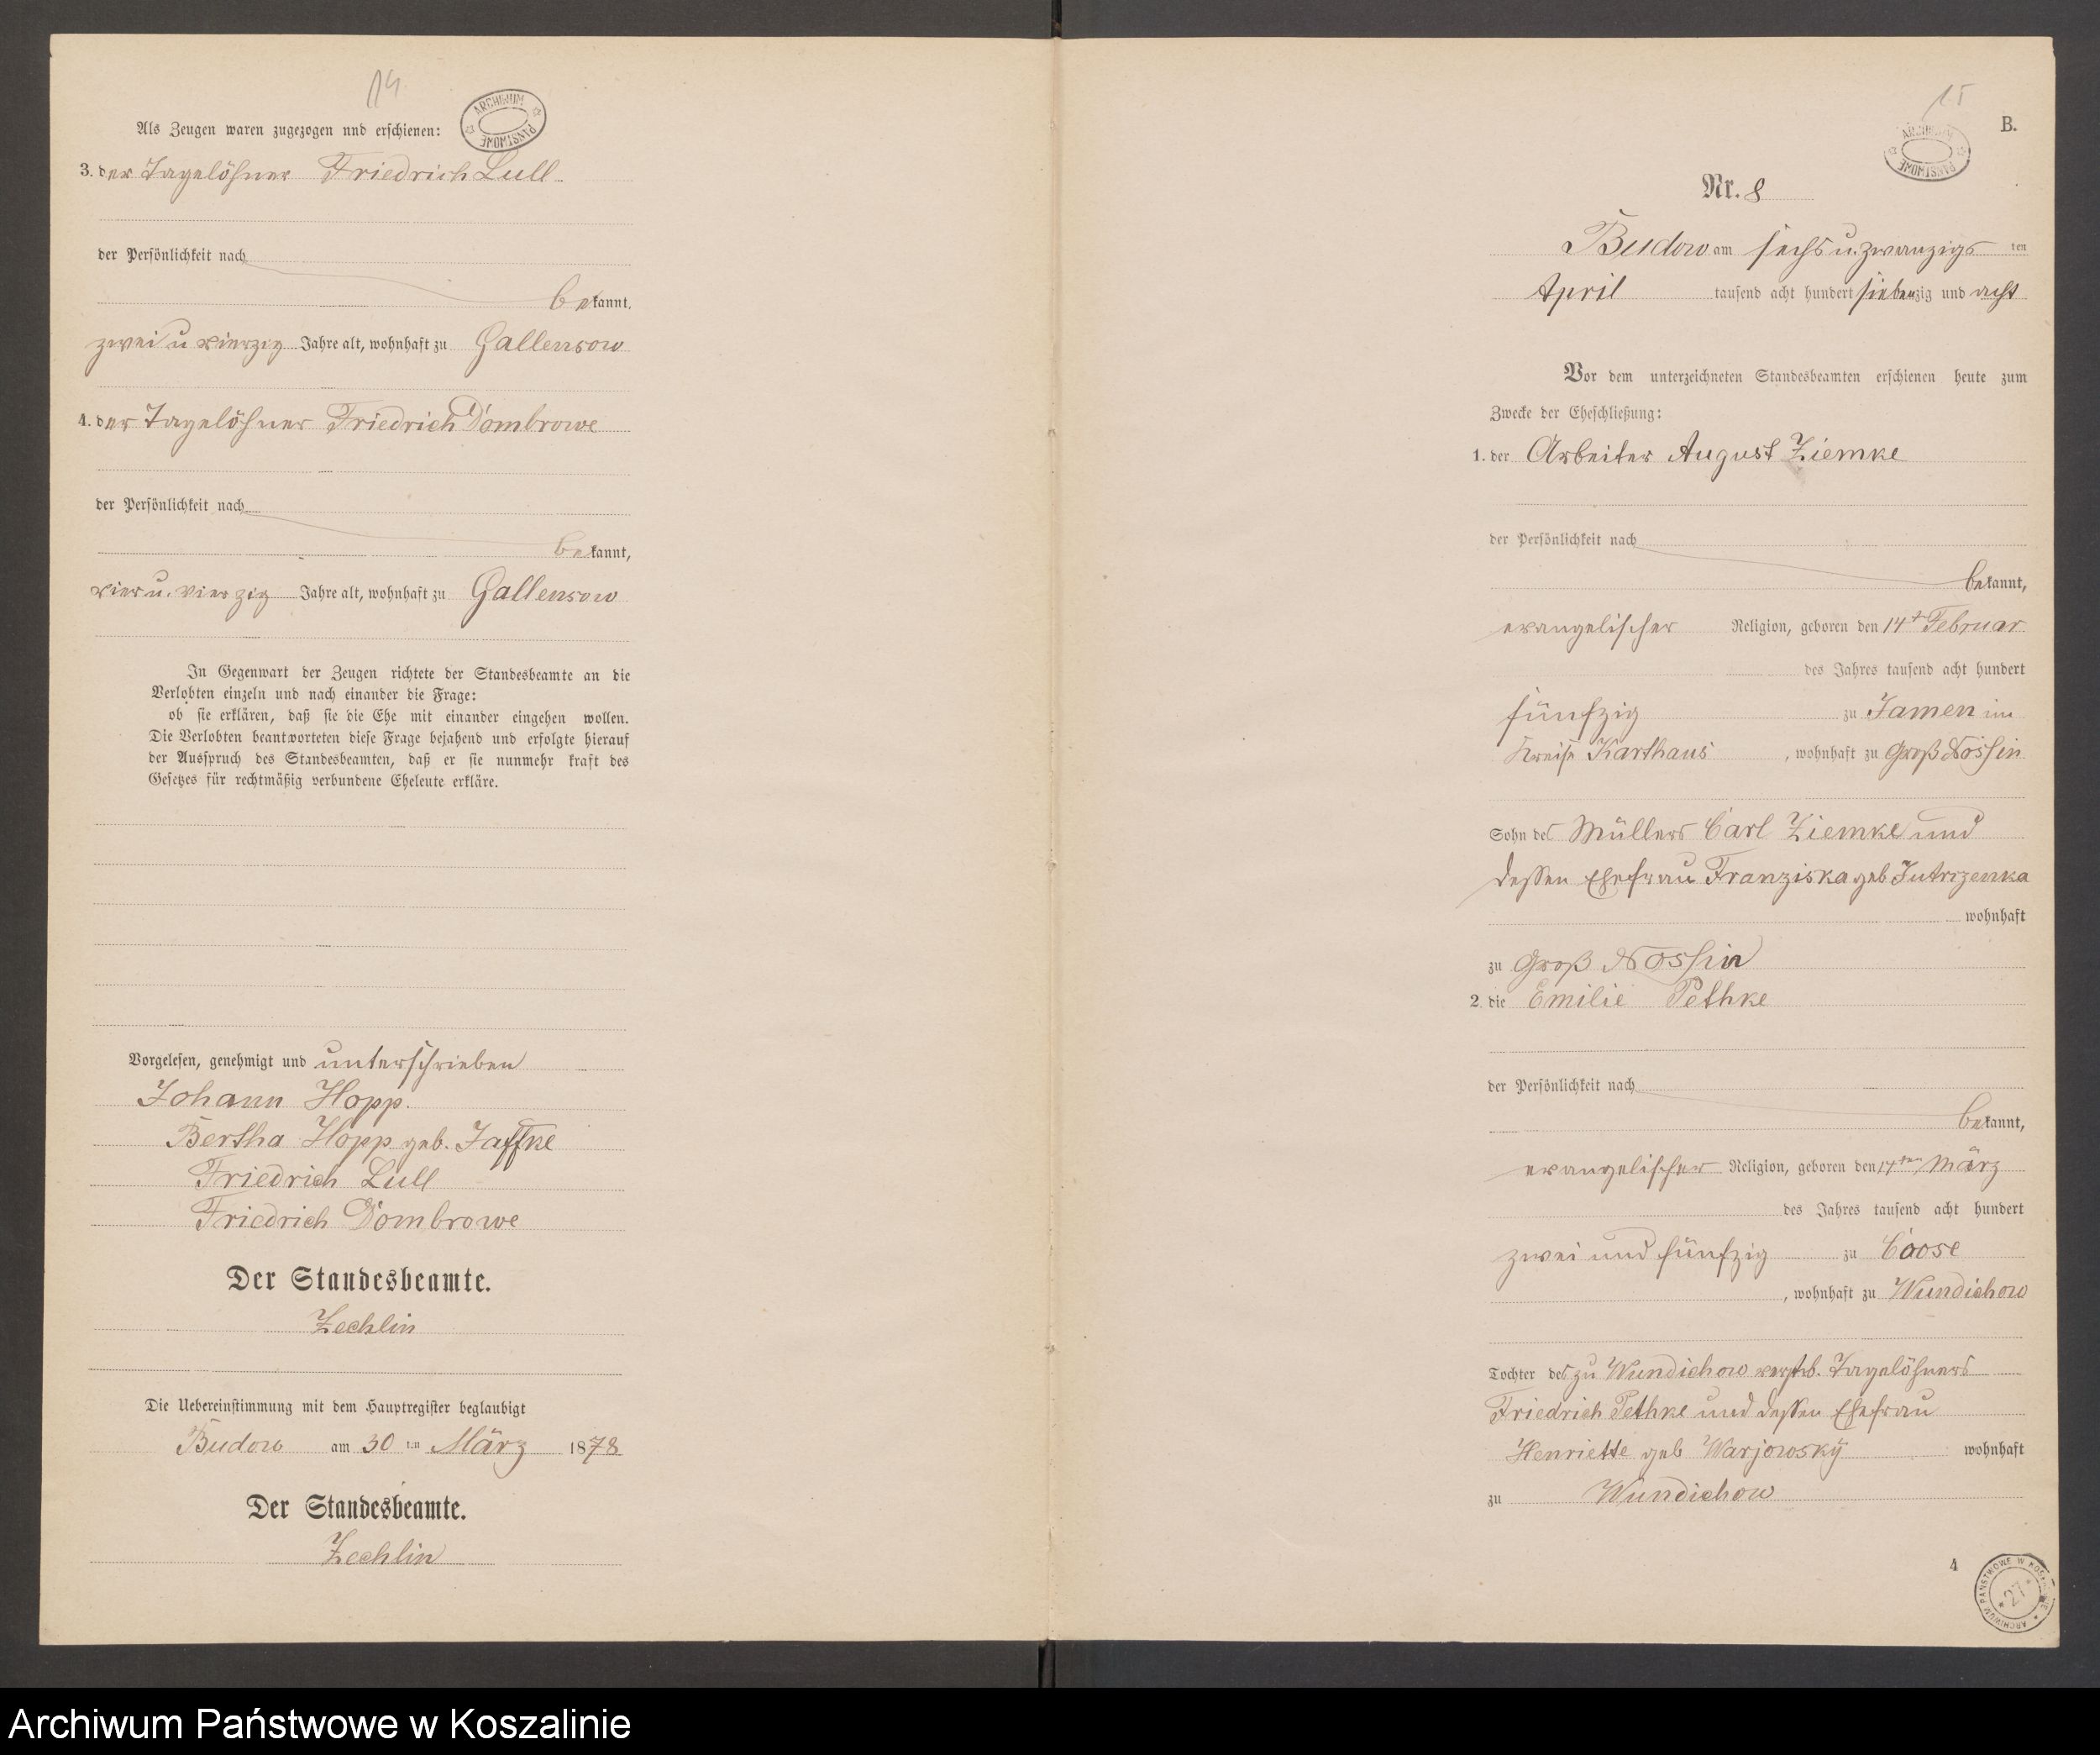 14
ARCHIWUM PAŃSTWOWE
Als Zeugen waren zugezogen und erschienen:
3. der Tagelöhner Friedrich Lull
der Persönlichkeit nach
bekannt,
zwei u vierzig Jahre alt, wohnhaft zu Gallensow
4. der Tagelöhner Friedrich Dombrowe
der Persönlichkeit nach
bekannt,
vier u. vierzig Jahre alt, wohnhaft zu Gallensow
In Gegenwart der Zeugen richtete der Standesbeamte an die
Verlobten einzeln und nach einander die Frage:
ob sie erklären, daß sie die Ehe mit einander eingehen wollen.
Die Verlobten beantworteten diese Frage bejahend und erfolgte hierauf
der Ausspruch des Standesbeamten, daß er sie nunmehr kraft des
Gesetzes für rechtmäßig verbundene Eheleute erkläre.
Vorgelesen, genehmigt und unterschrieben
Johann Hopp.
Bertha Hopp geb. Jaffke
Friedrich Lull
Friedrich Dombrowe
Der Standesbeamte.
Zechlin
Die Uebereinstimmung mit dem Hauptregister beglaubigt
Budow am 30 ten März 1878
Der Standesbeamte.
Zechlin
15
B.
ARCHIWUM PAŃSTWOWE
Nr. 8
Budow am sechs u. zwanzigs ten
April tausend acht hundert siebenzig und acht
Vor dem unterzeichneten Standesbeamten erschienen heute zum
Zwecke der Eheschließung:
1. der Arbeiter August Ziemke
der Persönlichkeit nach
bekannt,
evangelischer Religion, geboren den 14t Februar
des Jahres tausend acht hundert
fünfzig zu Jamen im
Kreise Karthaus, wohnhaft zu Groß Nossin
Sohn des Müllers Carl Ziemke und
dessen Ehefrau Franziska geb Jutrzenka
wohnhaft
zu Groß Nossin
2. die Emilie Pethke
der Persönlichkeit nach
bekannt,
evangelischer Religion, geboren den 17ten März
des Jahres tausend acht hundert
zwei und fünfzig zu Coose
, wohnhaft zu Wundichow
Tochter des zu Wundichow verstrb. Tagelöhners
Friedrich Pethke und dessen Ehefrau
Henriette geb Warjowsky wohnhaft
zu Wundichow
4
ARCHIWUM PAŃSTWOWE W KOSZALINIE
27
Archiwum Państwowe w Koszalinie